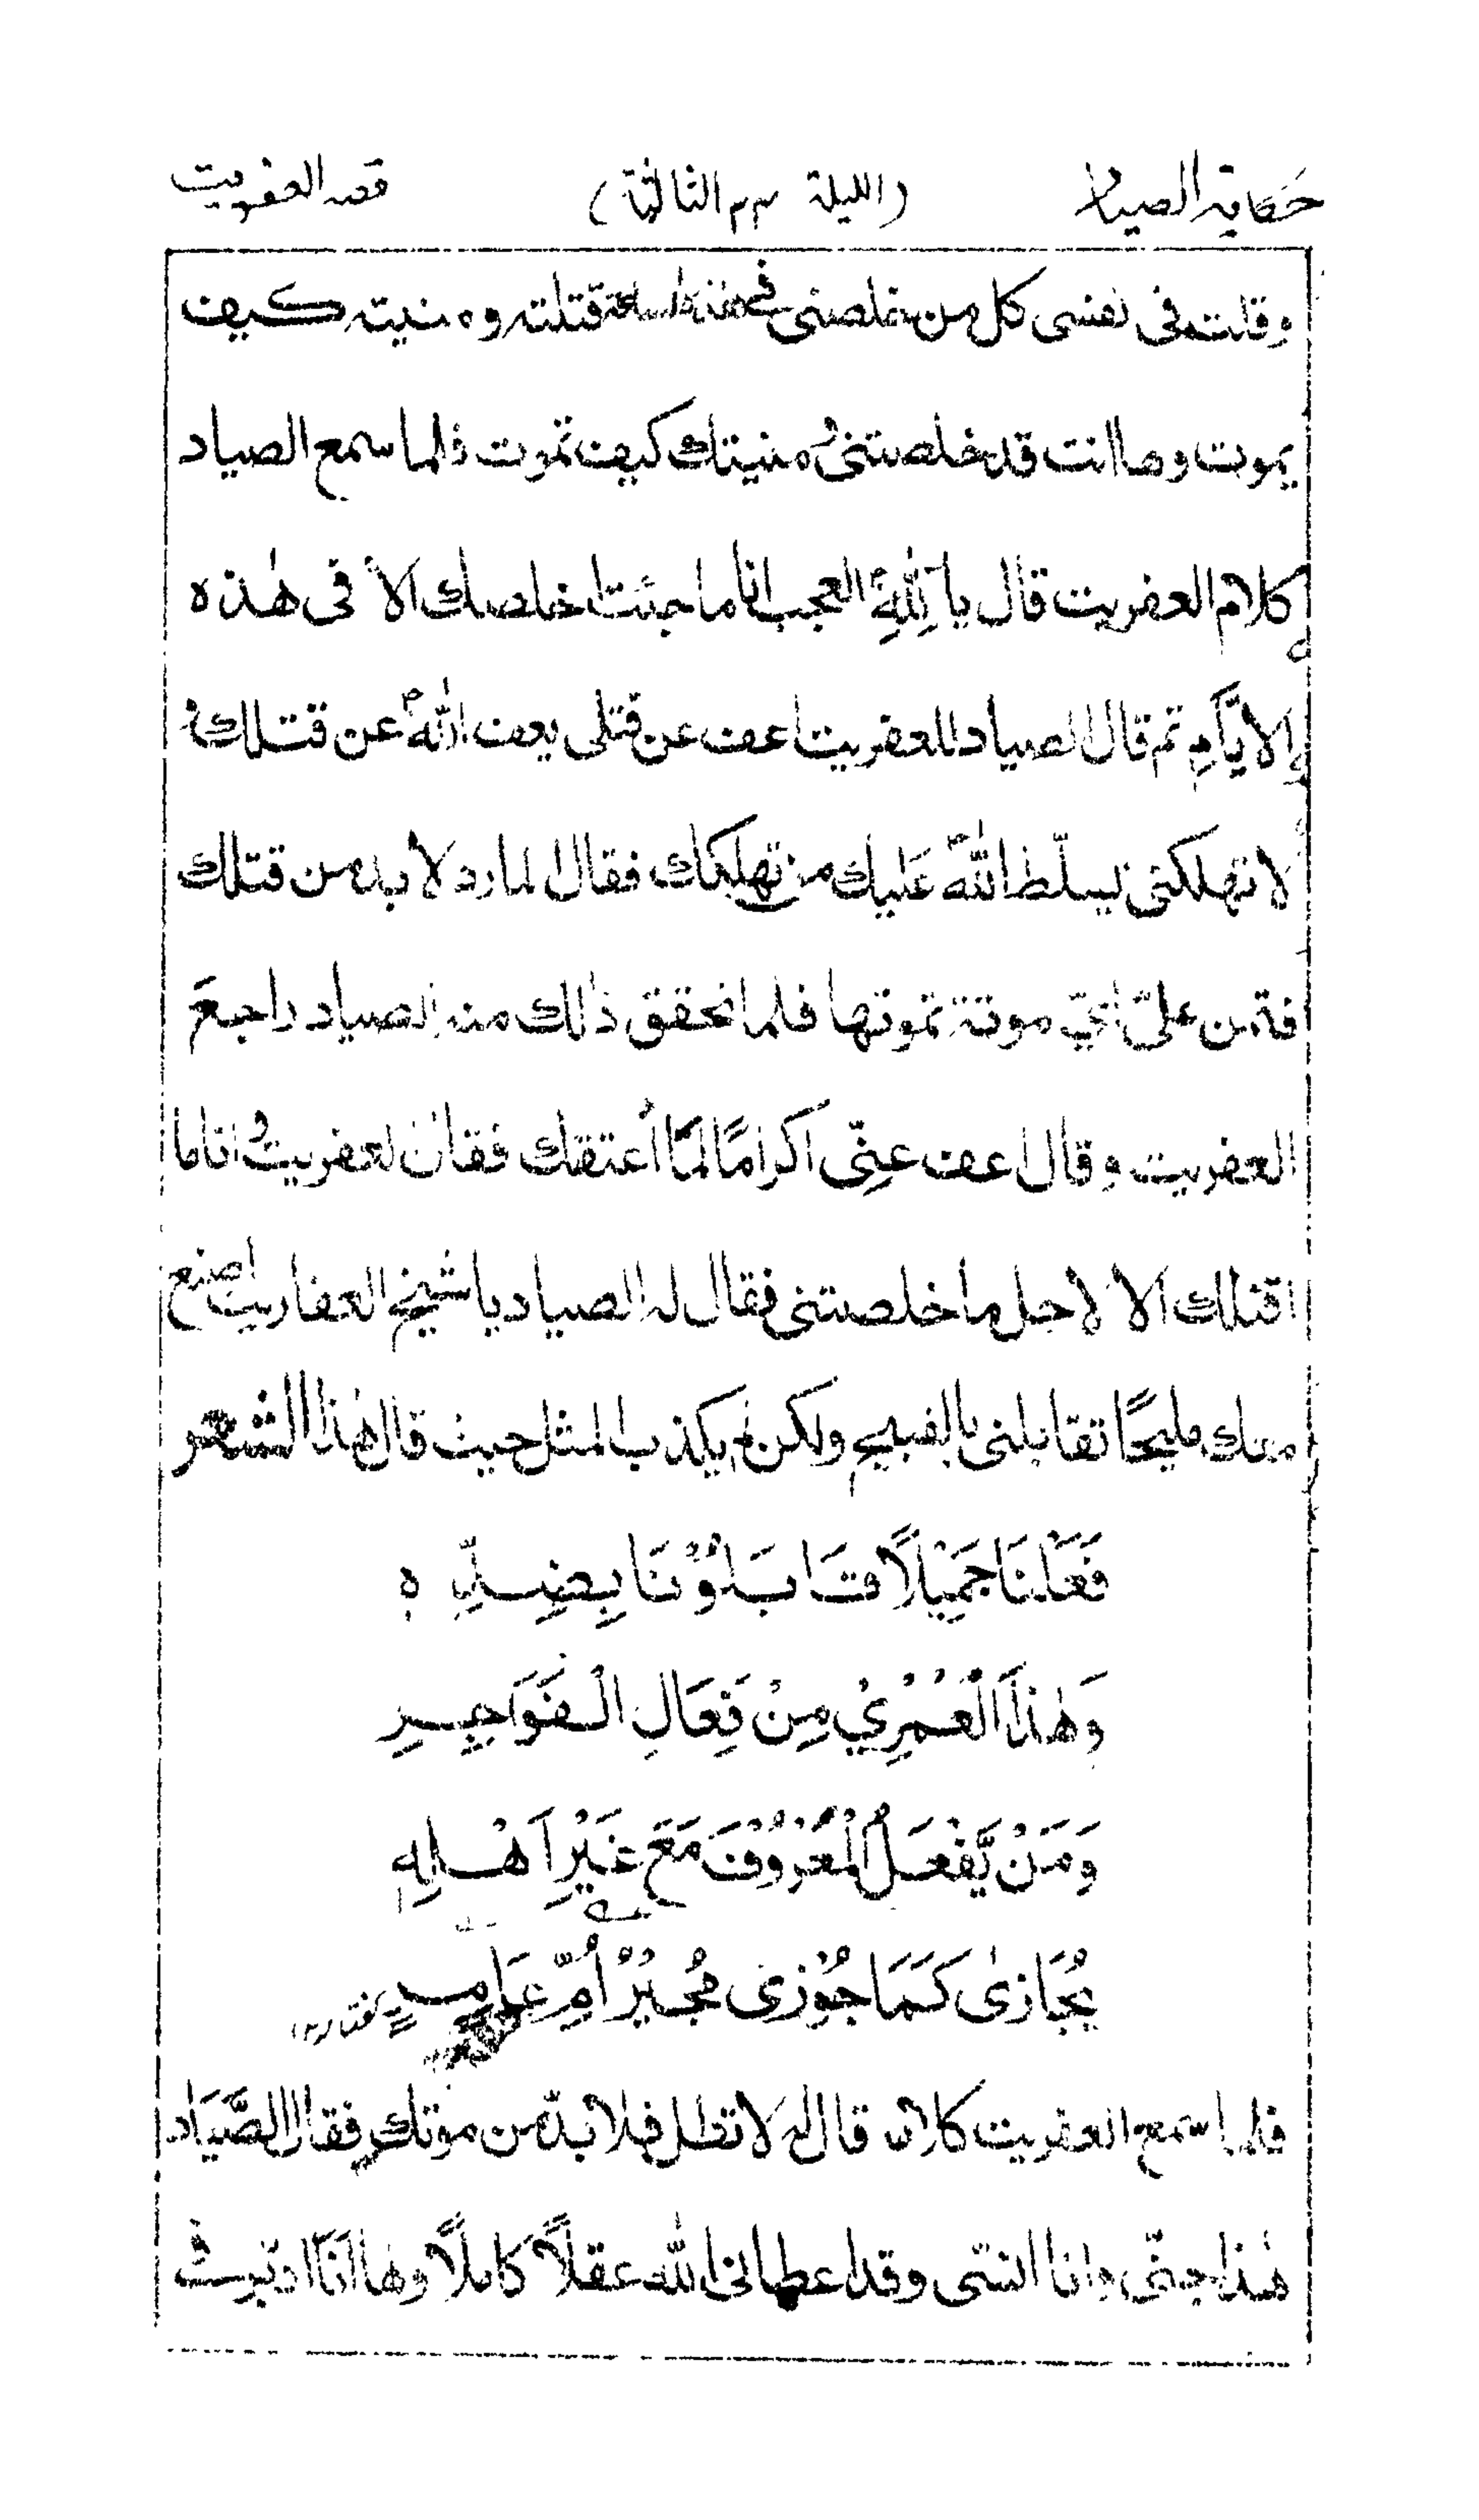 حكاية الصياد (الليلة ٣ م الثالثة) قصة العفريت
وقلت في نفسى كل من خلصنى في هذه الساعة قتلته و منيته كيف
يموت وها انت قد خلصتنى منيتك كيف تموت فلما سمع الصياد
كلام العفريت قال يا لله العجب انا ما جئت اخلصك الا فى هٰذه
الايّام ثم قال الصياد للعفريت اعف عن قتلى يعف اللهُ عن قتلك و
لا تهلكنى يسلّط اللهُ عَليك من يهلكك فقال المارد لا بد من قتلك
فتمن علىّ اىّ موتة تموتها فلما تحقق ذٰلك منه الصياد راجع
العفريت وقال اعف عنّى اكرامًا لمّا اُعتقك فقال العفريتُ انا ما
اقتلك الا لاجل ما خلصتنى فقال له الصياد يا شيخ العفاريت اصنع
معك مليحًا تقابلنى بالقبيح ولكن لم يكذب المثل حيث قال هٰذا الشعر
فَعَلْنَا جَمِيْلاً قَابَلُوْنَا بِضِدِّهِ
وَهٰذَا لَعُمْرِيْ مِنْ فِعَالِ الْفَوَاجِرِ
وَمَنْ يَّفْعَلُ الْمَعْرُوْفَ مَعْ غَيْرِ اَهْلِهِ
يُجَازىٰ كَمَا جُوْزِىَ مُجِيْرُ اُمِّ عَامِرٍ
فلما سمع العفريت كلامه قال له لا تطل فلا بدّ من موتك فقال الصَّيَاد
هٰذا جنّى وانا انسّى وقد اعطانى الله عقلاً كاملاً وها اَنَا ادبر فى